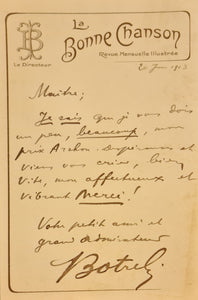 La
Bonne Chanson
Revue Mensuelle Illustrée
Le Directeur
20 Juin 1913
Maître,
Je sais que je vous dois
un peu, beaucoup, mon
prix
viens vous crier, bien
vite, mon affectueux et
vibrant Merci !
Votre petit ami et
grand admirateur
Botrel